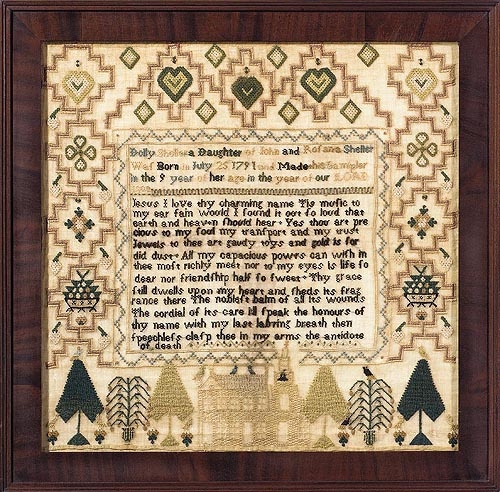 Dolly Sheller a Daughter of John and Rofana Sheller
Waf Born in July 25 1791 and Made this Sampler
in the 9 year of her age in the year of our LORD
Jesus I love thy charming name Tis mufic to
my ear fain would I found it out fo loud that
earth and heaven fhould hear + Yes thou art pre
cious to my foul my tranfport and my truft
Jewels to thee are gaudy toys and gold is for
did dust + All my capacious powrs can wifh in
thee moft richly meet nor to my eyes is life fo
dear nor friendfhip half fo fweet + Thy grace
ftill dwells upon my heart and fheds its frag
rance there The nobleft balm of all its wounds
The cordial of its care ill fpeak the honours of
thy name with my last labring breath then
fpeechlefs clafp thee in my arms the antidote
of death